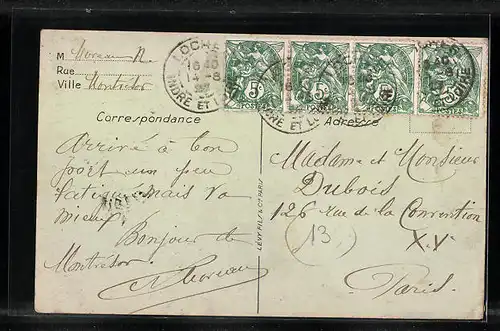 M Moreau N.
Rue
Ville Montrésor
LOCHES
16 40
14 -8
INDRE ET L
5c
5c
5c
5c
POSTES
Correspondance
Adresse
Arrivé à bon
port un peu
fatigué mais va
mieux
Bonjour de
Montrésor
N Moreau
LÉVY FILS & Cie PARIS
Madame et Monsieur
Dubois
126 rue de la Convention
13
XV
Paris.